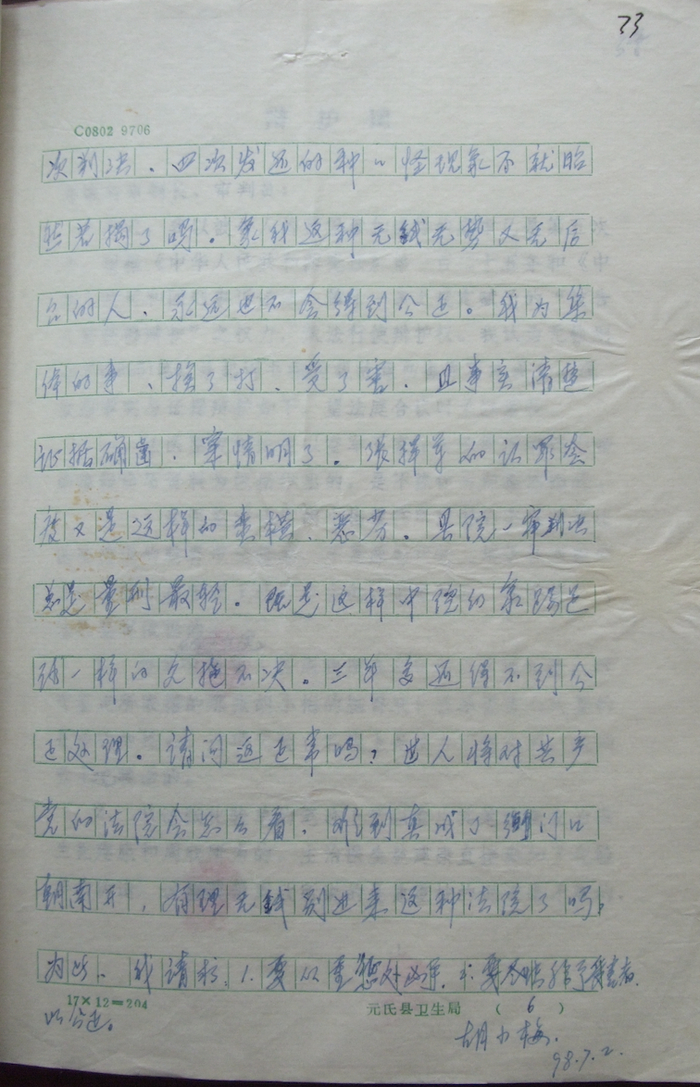 33
C0802 9706
次判决、四次发还的种种怪现象不就昭
然若揭了吗。象我这种无钱无势又无后
台的人、永远也不会得到公正。我为集
体的事、挨了打、受了害、且事实清楚
证据确凿、案情明了。张 的认罪态
度又是这样的 、恶劣。县院一审判决
总是量刑最轻。既是这样中院的
一样的久拖不决。三年多还得不到公
正处理。请问这正常吗？世人将对共产
党的法院会怎么看、难到真成了衙门口
朝南开，有理无钱别进来这种法院了吗？
为此、我请求：1.要以重惩处凶手。2.要 给予受害者
以公正。
17×12=204 元氏县卫生局 （ 6 ）
胡小梅
98.7.2.